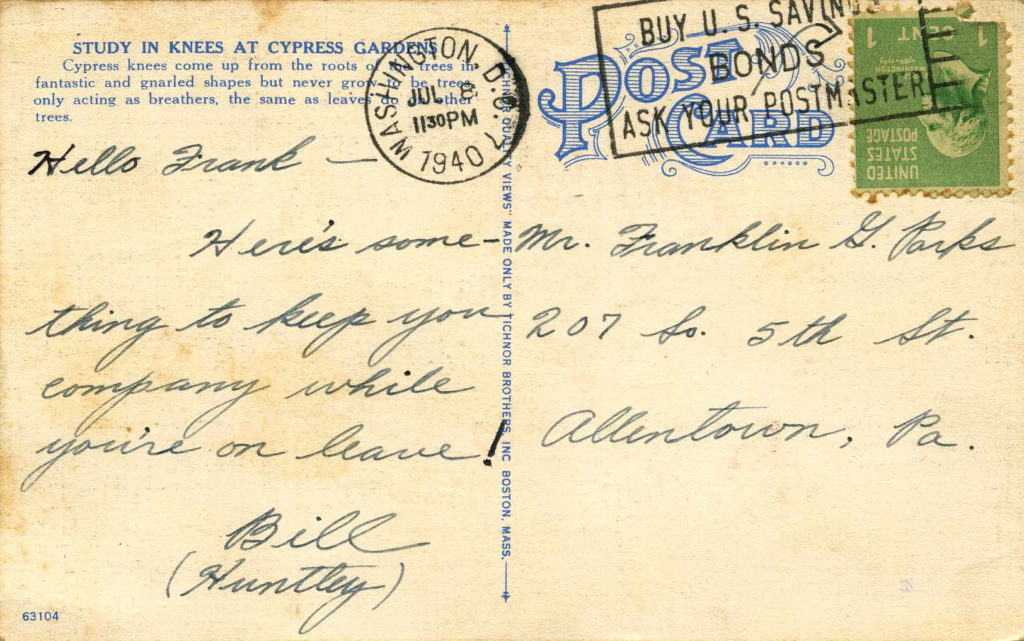 STUDY IN KNEES AT CYPRESS GARDENS
Cypress knees come up from the roots of trees in
fantastic and gnarled shapes but never grow be trees
only acting as breathers, the same as leaves other
trees.
WASHINGTON, D.C. 7
JUL 8
1130 PM
1940
BUY U. S. SAVINGS
BONDS
ASK YOUR POSTMASTER
POST
CARD
1 CENT 1
UNITED
STATES
POSTAGE
Hello Frank —
Here's some-
thing to keep you
company while
you're on leave!
Bill
(Huntley)
QUALITY VIEWS" MADE ONLY BY TICHNOR BROTHERS, INC BOSTON, MASS.
Mr. Franklin G. Parks
207 So. 5th St.
Allentown, Pa.
63104